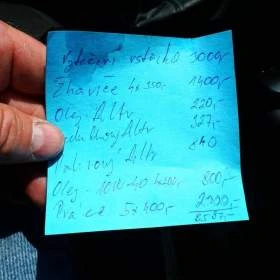 Vytočení vstřiků 3000,-
Žhaviče 4x350,- 1400,-
Olej. filtr 220,-
Vzduchový filtr 327,-
filtr 840
Olej 10W-40 4x200,- 800,-
Práce 5x400,- 2000,-
8587,-